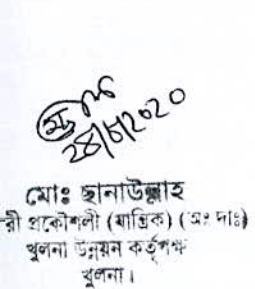 ২৪/৬/২০২০
মোঃ ছানাউল্লাহ
রী প্রকৌশলী (যান্ত্রিক) (অঃ দাঃ)
খুলনা উন্নয়ন কর্তৃপক্ষ
খুলনা।